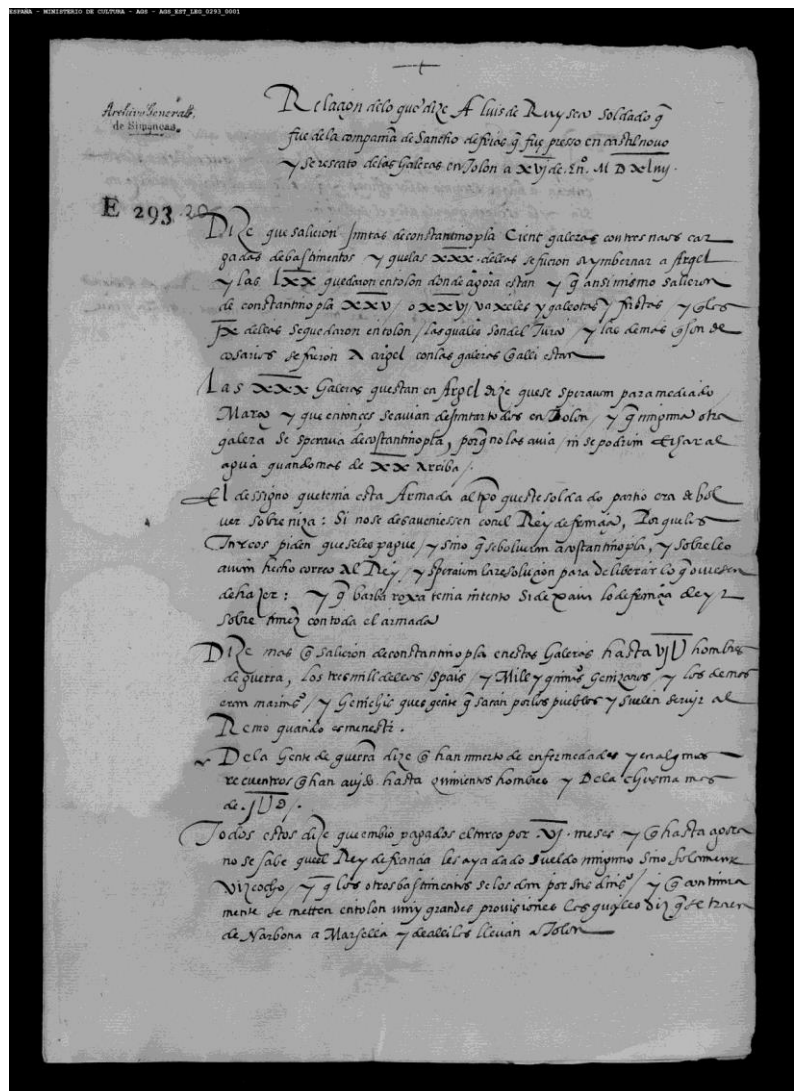 ESPAÑA - MINISTERIO DE CULTURA - AGS - AGS_EST_LEG_0293_0001
Archivo General
de Simancas.
E 293-20
Relaçion delo que dize A luis de soldado q̃
fue dela compañia de Sancho de frias q̃ fue presso en castilnovo
y se rescato de las Galeras en Tolon a XVJ de. En.º M D xliiij.
Dize que salieron Juntas de constantinopla Cient galeras con tres naos car
gadas de bastimentos y que las XXX dellas se fueron a ymbernar a Argel
y las lxx quedaron en tolon donde agora estan y q̃ ansi mismo salieron
de constantinopla XXV / o XXVJ vaxeles y galeotas y fustas y q̃ los
JX dellas se quedaron en tolon / las quales son del Turco / y las demas q̃ son de
cosarios se fueron A argel con las galeras q̃ alli estan
Las XXX Galeras questan en Argel dize que se speravan para mediado
Março y que entonces se avian de juntar todos en Tolon / y q̃ ninguna otra
galera se sperava de costantinopla, porq̃ no las avia / ni se podrian echar al
agua quando mas de XX Arriba /.
El dessigno que tenia esta Armada al tp̃o queste soldado partio era de bol
ver sobre niza: Si no se desaveniessen con el Rey de françia, Porque los
Turcos piden que se les pague / y sino q̃ se bolveran a costantinopla, y sobrello
avian hecho correo Al Rey / y speravan la resoluçion para deliberar lo q̃ oviesen
de hazer: y q̃ barba roxa tenia intento si dexava lo de françia de yr
sobre tunez con toda el armada
Dize mas q̃ salieron de constantinopla en estas Galeras hasta hombres
de guerra, los tres mill dellos spais / y Mill y quinios Genizaros / y los demas
eran marinos / y Genichis ques gente q̃ sacan por los pueblos y suelen servir al
Remo quando es menester.
De la Gente de guerra dize q̃ han muerto de enfermedades y en algunos
recuentros q̃ han avido hasta quinientos hombres y De la chusma mas
de
Todos estos dize que embio pagados el turco por XJ. meses y q̃ hasta agora
no se sabe quel Rey de françia les aya dado sueldo ninguno sino solamente
vizcocho / y q̃ los otros bastimentos se los dan por sus dinos / y q̃ continua
mente se metten en tolon muy grandes provisiones las quales diz q̃ se traen
de Narbona a Marsella y de alli los llevan a Tolon